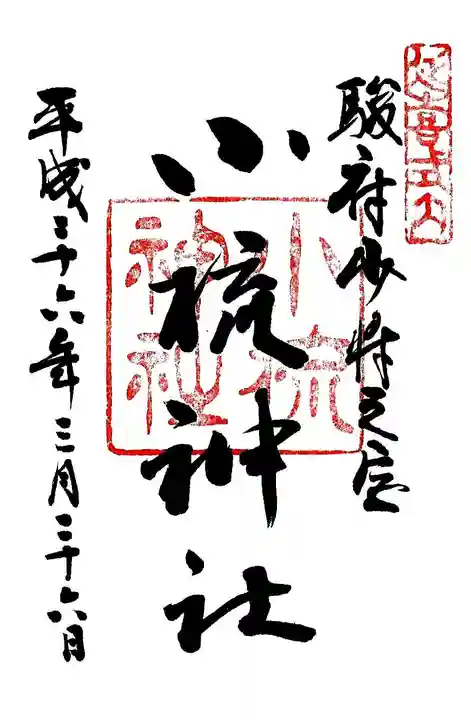 延喜式内
駿府少将之宮
小梳神社
小梳神社
平成二十六年三月二十六日